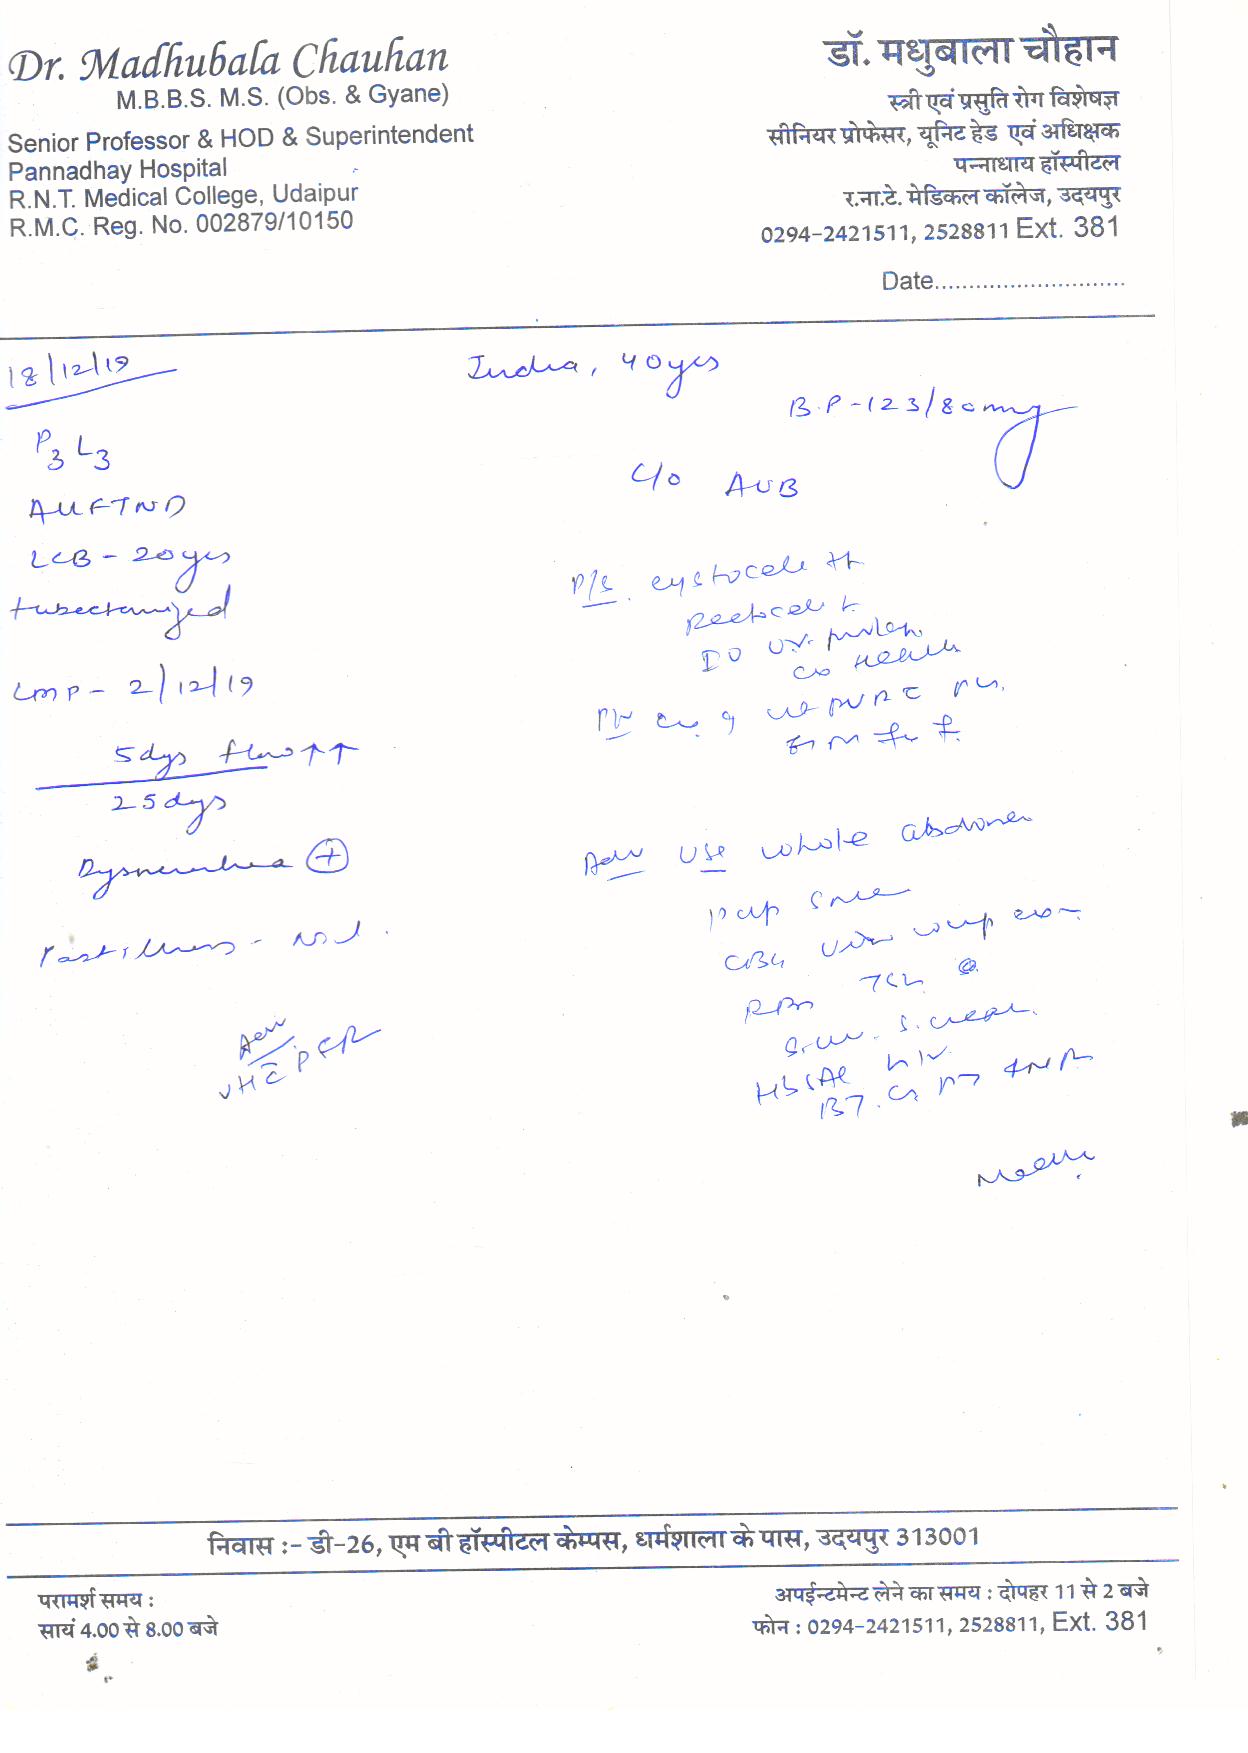 Dr. Madhubala Chauhan
M.B.B.S. M.S. (Obs. & Gyane)
Senior Professor & HOD & Superintendent
Pannadhay Hospital
R.N.T. Medical College, Udaipur
R.M.C. Reg. No. 002879/10150
डॉ. मधुबाला चौहान
स्त्री एवं प्रसुति रोग विशेषज्ञ
सीनियर प्रोफेसर, यूनिट हेड एवं अधिक्षक
पन्नाधाय हॉस्पीटल
र.ना.टे. मेडिकल कॉलेज, उदयपुर
0294-2421511, 2528811 Ext. 381
Date............................
18/12/19
India, 40yrs
B.P-123/80mmg
P3 L3
AUFTND
LCB - 20yrs
tubectamized
LMP - 2/12/19
5dys flow↑↑
25dys
Dysmenorrhea +
Past illness - Nil.
Adv
VH C PFR
C/O AUB
P/S. cystocele ++
Rectocele +
Adv USG whole abdomen
Pap Smear
CBC Urine comp
RBS TSH
S. creat.
HbsAg HIV
BT. CT PT INR
निवास :- डी-26, एम बी हॉस्पीटल केम्पस, धर्मशाला के पास, उदयपुर 313001
परामर्श समय :
सायं 4.00 से 8.00 बजे
अपईन्टमेन्ट लेने का समय : दोपहर 11 से 2 बजे
फोन : 0294-2421511, 2528811, Ext. 381